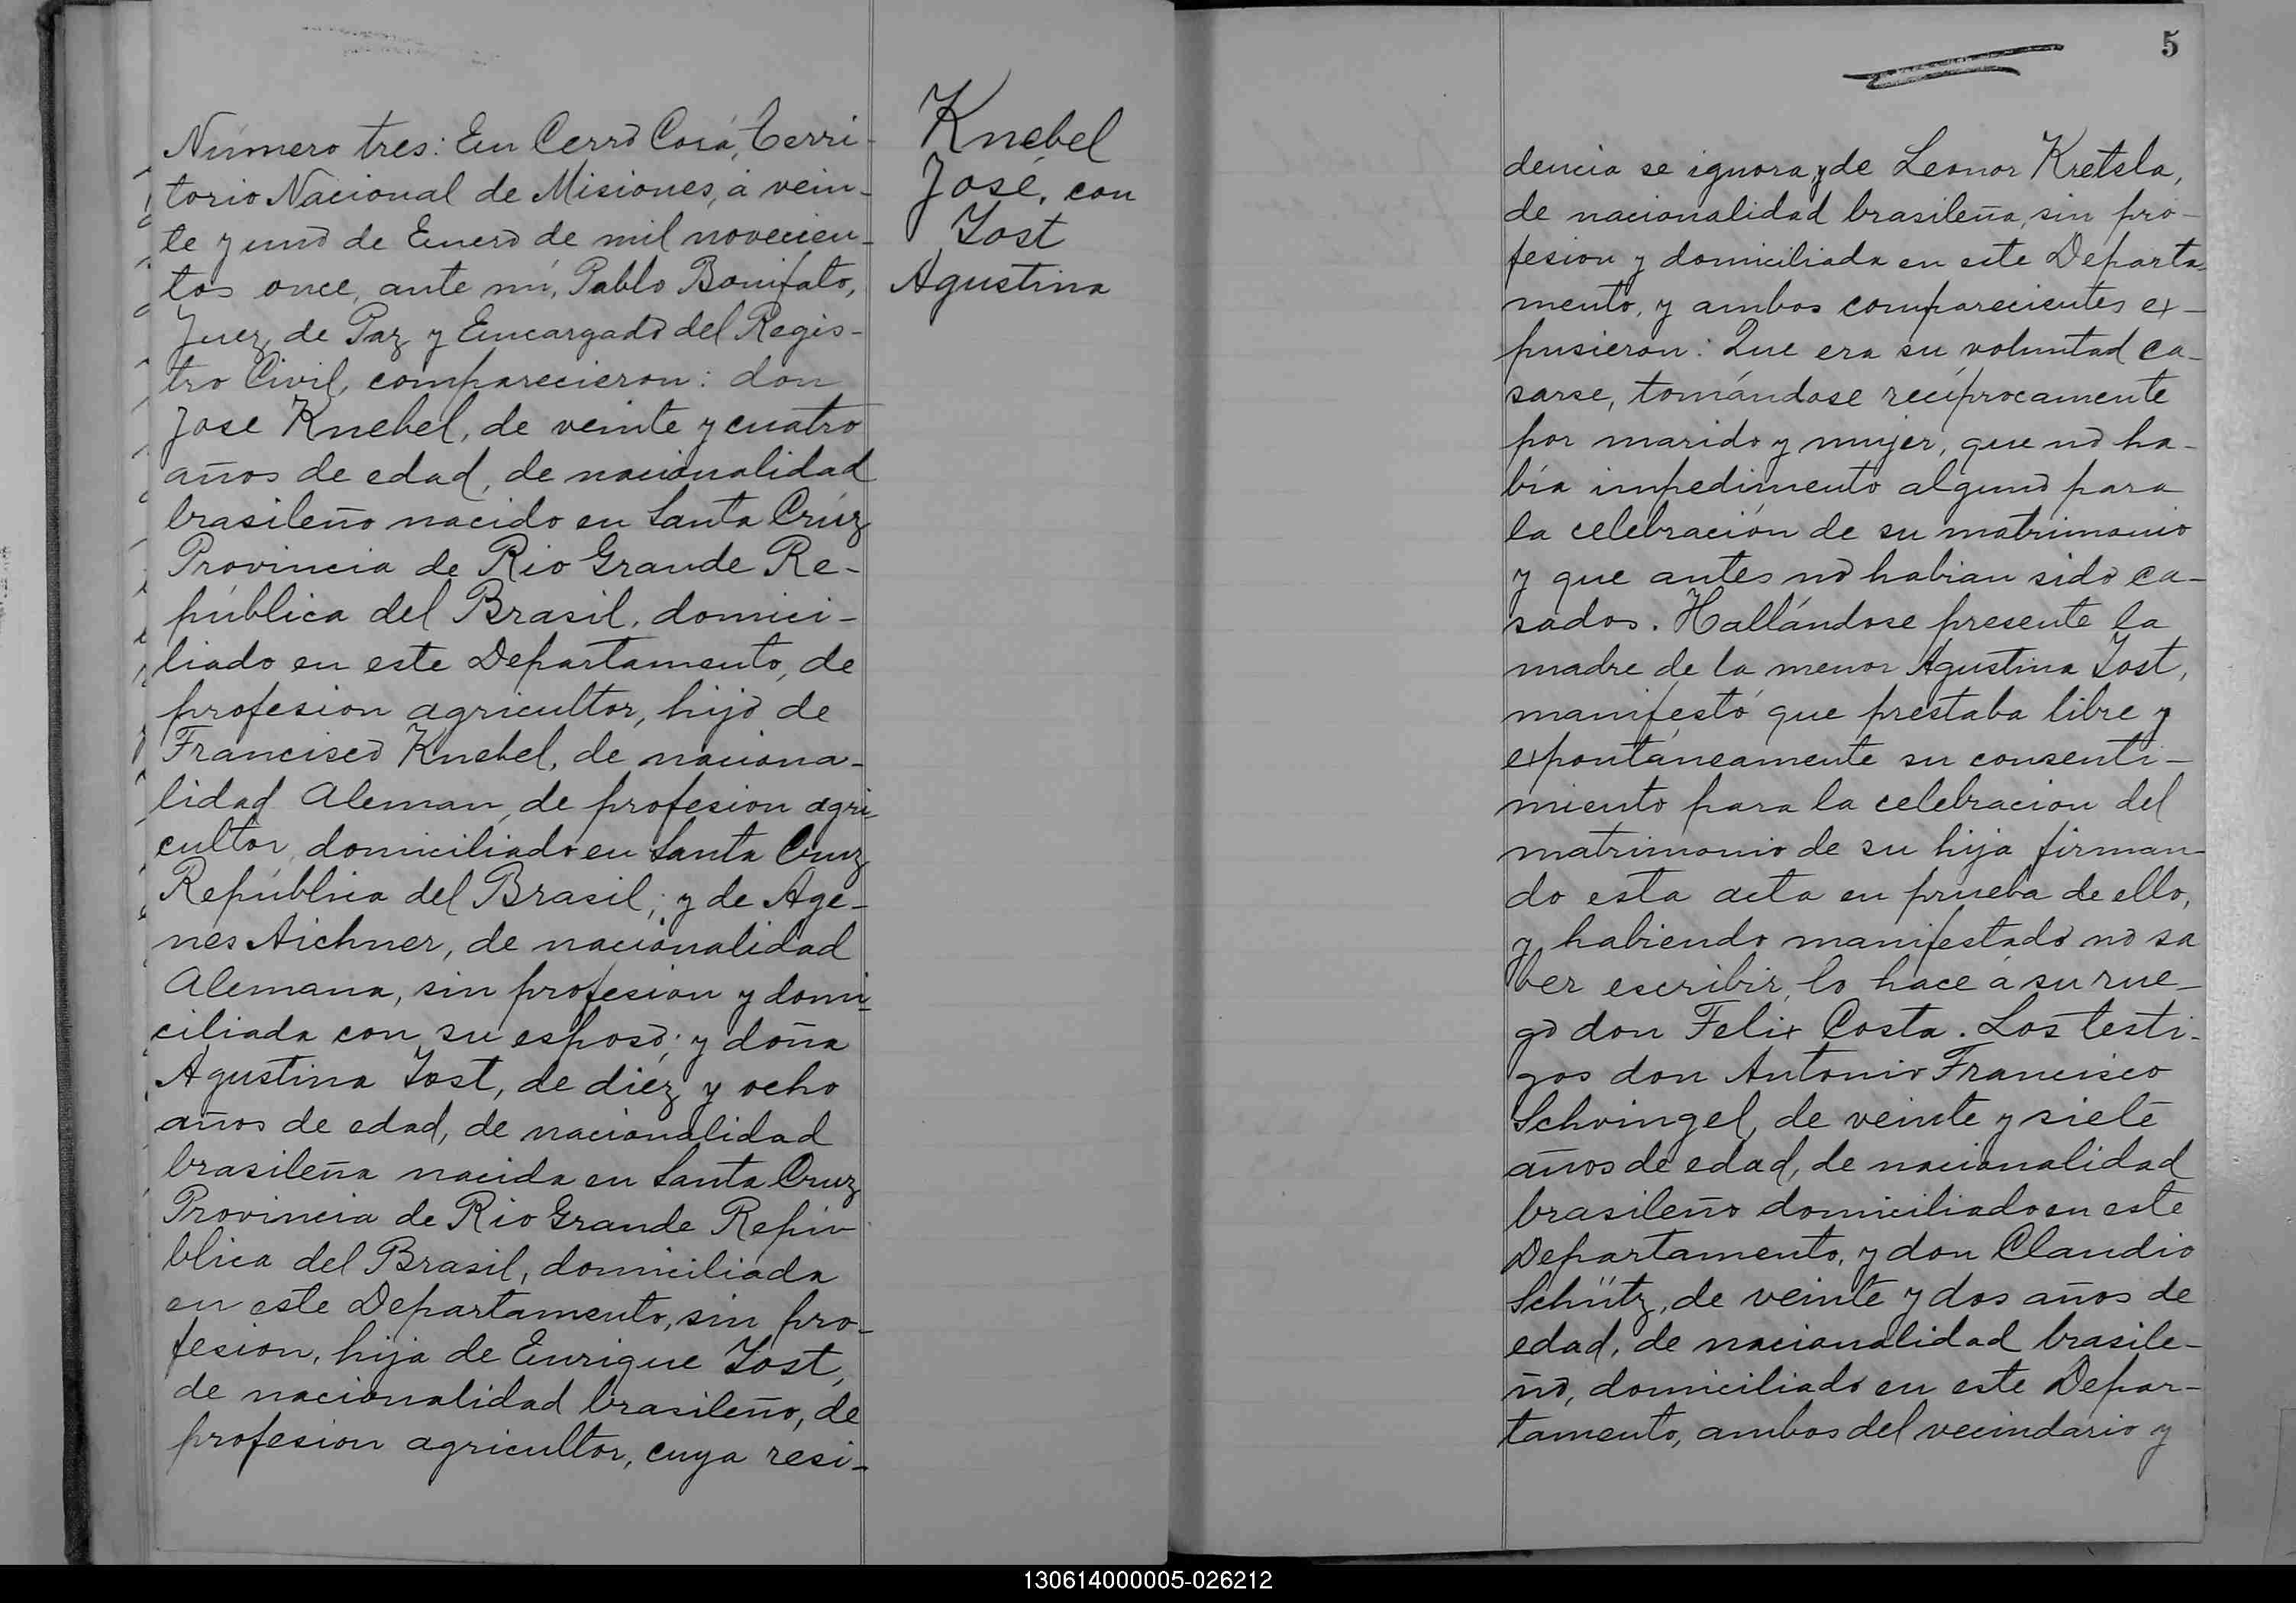 Número tres: En Cerro Corá, Terri-
torio Nacional de Misiones, á vein-
te y uno de Enero de mil novecien-
tos once, ante mi, Pablo Bonifato,
Juez de Paz y Encargado del Regis-
tro Civil, comparecieron: don
Jose Knebel, de veinte y cuatro
años de edad, de nacionalidad
brasileño nacido en Santa Crúz
Provincia de Rio Grande Re-
pública del Brasil, domici-
liado en este Departamento, de
profesion agricultor, hijo de
Francisco Knebel, de naciona-
lidad Aleman, de profesion agri-
cultor, domiciliado en Santa Cruz
República del Brasil; y de Age-
nes Aichner, de nacionalidad
Alemana, sin profesion y domi-
ciliada con su esposo; y doña
Agustina Yost, de diez y ocho
años de edad, de nacionalidad
brasileña nacida en Santa Cruz
Provincia de Rio Grande Repú
blica del Brasil, domiciliada
en este Departamento, sin pro-
fesion, hija de Enrique Yost,
de nacionalidad brasileño, de
profesion agricultor, cuya resi-
Knebel
José, con
Yost
Agustina
5
dencia se ignora, y de Leonor Kretsla,
de nacionalidad brasileña, sin pro-
fesion y domiciliada en este Departa-
mento, y ambos comparecientes ex-
pusieron: Que era su voluntad ca-
sarse, tomándose recíprocamente
por marido y mujer, que no ha-
bía impedimento alguno para
la celebración de su matrimonio
y que antes no habian sido ca-
sados. Hallándose presente la
madre de la menor Agustina Yost,
manifestó que prestaba libre y
expontáneamente su consenti-
miento para la celebracion del
matrimonio de su hija firman-
do esta acta en prueba de ello,
y habiendo manifestado no sa
ber escribir, lo hace á su rue-
go don Felix Costa. Los testi-
gos don Antonio Francisco
Schvingel, de veinte y siete
años de edad, de nacionalidad
brasileño domiciliado en este
Departamento, y don Claudio
Schütz, de veinte y dos años de
edad, de nacionalidad brasile-
ño, domiciliado en este Depar-
tamento, ambos del vecindario y
130614000005-026212